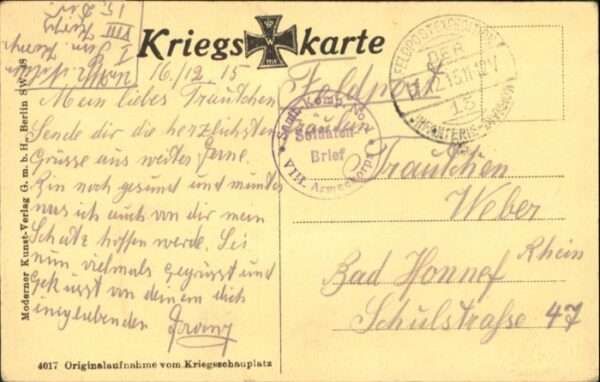 Kriegs karte
16/12 15
Mein liebes Trautchen
Sende dir die herzlichsten
Grüsse aus weiter Ferne.
Bin noch gesund und munter
was ich auch von dir mein
Schatz hoffen werde. Sei
nun vielmals gegrüsst und
geküsst von deinem dich
Franz
Feldpost
FELDPOSTEXPEDITION
DER
15
INFANTERIE-DIVISION
Sanit. Komp.
Soldaten
Brief
VIII. Armeekorps
Fräulein
Trautchen
Weber
Bad Honnef
Rhein
Schulstraße 47
Moderner Kunst-Verlag G. m. b. H., Berlin SW.
4017 Originalaufnahme vom Kriegsschauplatz